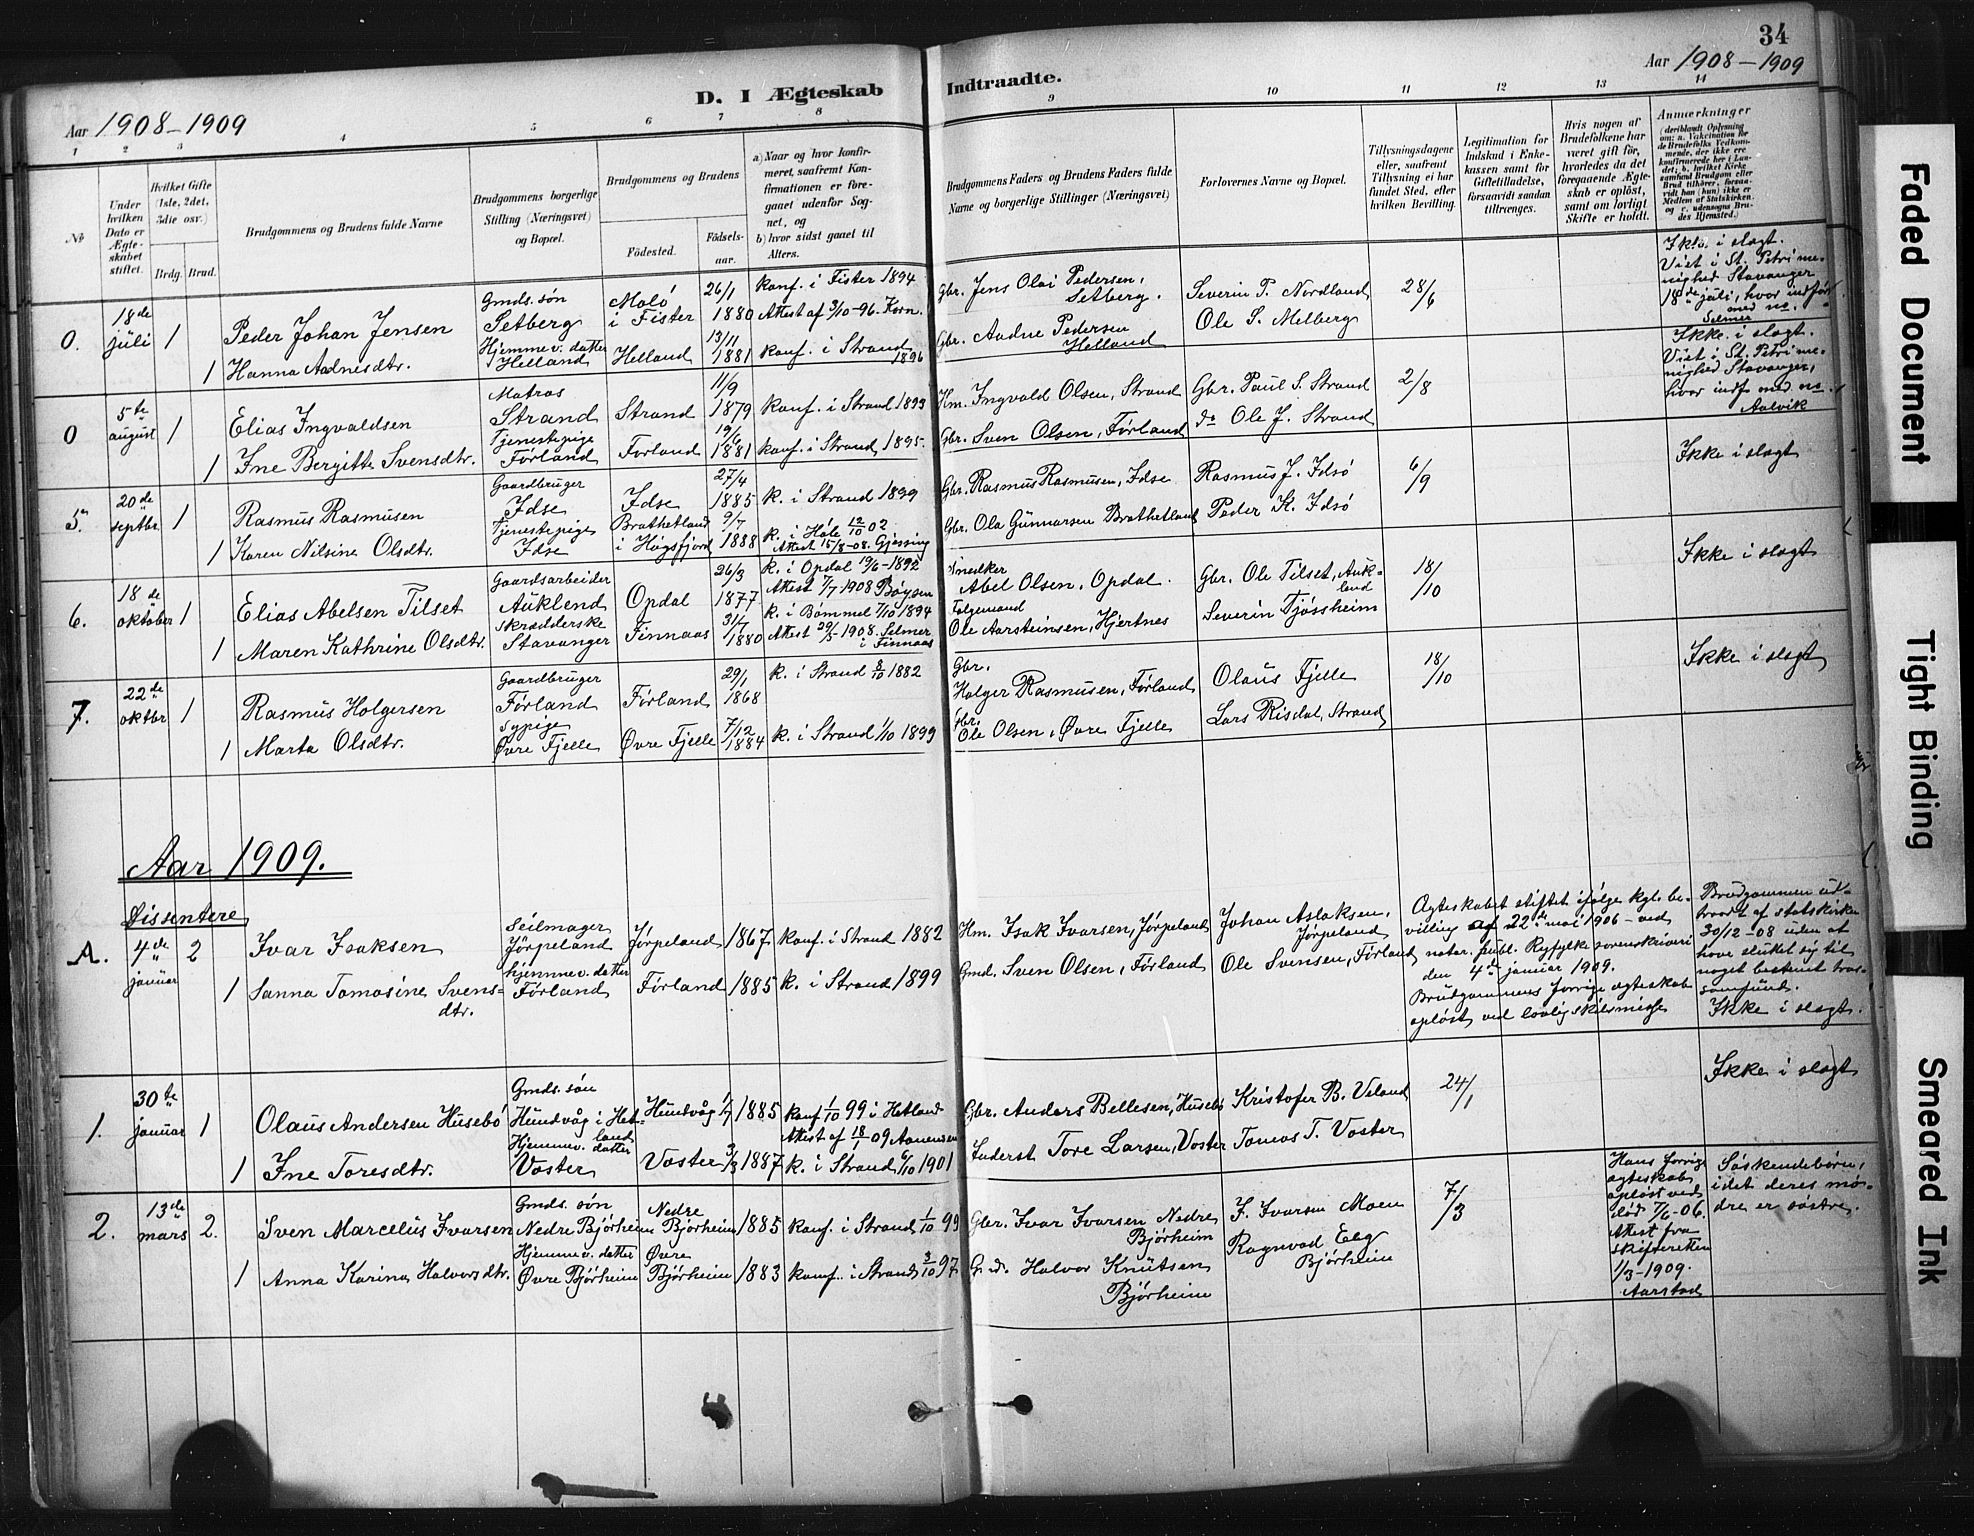 34
Aar 1908-1909
D. I Ægteskab Indtraadte.
Aar 1908-1909
1 2 3 4 5 6 7 8 9 10 11 12 13 14
No
Under hvilken Dato er Ægteskabet stiftet.
Hvilket Gifte (1ste, 2det, 3die osv.)
Brdg. Brud.
Brudgommens og Brudens fulde Navne
Brudgommens borgerlige Stilling (Næringsvei) og Bopæl.
Brudgommens og Brudens
Födested. Födselsaar.
a) Naar og hvor konfirmeret, saafremt Konfirmationen er foregaaet udenfor Sognet, og
b) hvor sidst gaaet til Alters.
Brudgommens Faders og Brudens Faders fulde Navne og borgerlige Stillinger (Næringsvei)
Forlovernes Navne og Bopæl.
Tillysningsdagene eller, saafremt Tillysning ei har fundet Sted, efter hvilken Bevilling.
Legitimation for Indskud i Enkekassen samt for Giftetilladelse, forsaavidt saadan tiltrænges.
Hvis nogen af Brudefolkene har været gift før, hvorledes da det foregaaende Ægteskab er oplöst, samt om lovligt Skifte er holdt.
Anmærkninger
(deriblandt Oplysning om: a. Vakcination for de Brudefolks Vedkommende, der ikke ere konfirmerede her i Landet; b. hvilket Kirkesamfund Brudgom eller Brud tilhörer, forsaavidt han (hun) ikke er Medlem af Statskirken, og c. udensogns Brudes Hjemsted.)
0. 18de juli 1 Peder Johan Jensen Gmds. søn Setberg Malö i Fister 26/1 1880 konf. i Fister 1894 Attest af 3/10-96. Korn. Gbr. Jens Olai Pedersen, Setberg. Severin P. Nordland 28/6 Ikke i slægt. Viet i St. Petri menighed Stavanger 18de juli, hvor indført med no. Selmer
1 Hanna Aadnesdtr. Hjemmev. datter Helland Helland 13/11 1881 konf. i Strand 1896 Gbr. Aadne Pedersen Helland Ole S. Melberg
0 5te august 1 Elias Ingvaldsen Matros Strand Strand 11/9 1879 konf. i Strand 1893 Hm. Ingvald Olsen, Strand Gbr. Paul S. Strand 2/8 Ikke i slægt. Viet i St. Petri menighed Stavanger, hvor indf. med no. Aalvik
1 Ine Bergitte Svensdtr. Tjenestepige Førland Førland 19/6 1881 konf. i Strand 1895. Gbr. Sven Olsen, Førland do Ole J. Strand
5. 20de septbr 1 Rasmus Rasmusen Gaardbruger Idse Idse 27/4 1885 k. i Strand 1899 Gbr. Rasmus Rasmusen, Idse Rasmus J. Idsø 6/9 Ikke i slægt
1 Karen Nilsine Olsdtr. Tjenestepige Idse Brathetland i Høgsfjord 9/7 1888 k. i Høle 12/10 02 Attest 15/8-08. Gjessing Gbr. Ola Gunnarsen Brathetland Peder K. Idsø
6. 18de oktober 1 Elias Abelsen Tilset Gaardsarbeider Auklend Opdal 26/3 1877 k. i Opdal 19/6-1892 Attest 7/7 1908 Bøysen Snedker Abel Olsen, Opdal. Gbr. Ole Tilset, Aukland 18/10 Ikke i slægt
1 Maren Kathrine Olsdtr. skrædderske Stavanger Finnaas 31/7 1880 k. i Bømmel 7/10 1894 Attest 29/5-1908. Selmer i Finnaas Ole Aarsteinsen, Hjertnes Severin Tjøssheim
7. 22de oktbr 1 Rasmus Holgersen Gaardbruger Førland Førland 29/1 1868 k. i Strand 8/10 1882 Gbr. Holger Rasmusen, Førland Olaus Fjelle 18/10 Ikke i slægt
1 Marta Olsdtr. sypige Øvre Fjelle Øvre Fjelle 7/12 1884 k. i Strand 1/10 1899 Gbr. Ole Olsen, Øvre Fjelle Lars Risdal, Strand
Aar 1909.
Dissentere
A. 4de januar 2 Ivar Isaksen Seilmager Jørpeland Jørpeland 1867 konf. i Strand 1882 Hm. Isak Ivarsen, Jørpeland Johan Aslaksen, Jørpeland
1 Sanna Tomasine Svensdtr. hjemmev. datter Førland Førland 1885 k. i Strand 1899 Gmd. Sven Olsen, Førland Ole Svensen, Førland
Ægteskabet stiftet ifølge kgl. bevilling af 22de mai 1906 – ved notar. publ. Ryfylke sorenskriveri den 4de januar 1909. Brudgommens forrige ægteskab opløst ved lovlig skilsmisse
Brudgommen udtraadt af statskirken 30/12-08 uden at have sluttet sig til noget bestemt trossamfund. Ikke i slægt.
1. 30te januar 1 Olaus Andersen Husebø Gmds. søn Hundvåg i Hetland Hundvåg 1/7 1885 konf. 1/10 99 i Hetland Attest af 18/1 09 Aanensen Gbr. Anders Bellesen, Husebø Kristofer B. Veland 24/1 Ikke i slægt
1 Ine Toresdtr. Hjemmev. datter Voster Voster 3/3 1887 k. i Strand 6/10 1901 Inderst Tore Larsen, Voster Tomas T. Voster
2. 13de mars 2. Sven Marcelius Ivarsen Gmds. søn Nedre Bjørheim Nedre Bjørheim 1885 konf. i Strand 1/10 99 Gbr. Ivar Ivarsen Nedre Bjørheim I. Ivarsen Moen 7/3 Hans forrige ægteskab opløst ved død 7/6-06. Attest fra skifteretten 1/3-1909. Aarstad Søskendebørn, idet deres mødre er søstre.
1 Anna Karina Halvorsdtr. Hjemmev. datter Øvre Bjørheim Øvre Bjørheim 1883 konf. i Strand 3/10 97 Halvor Knutsen Bjørheim Ragnvad Eeg Bjørheim
Faded Document
Tight Binding
Smeared Ink